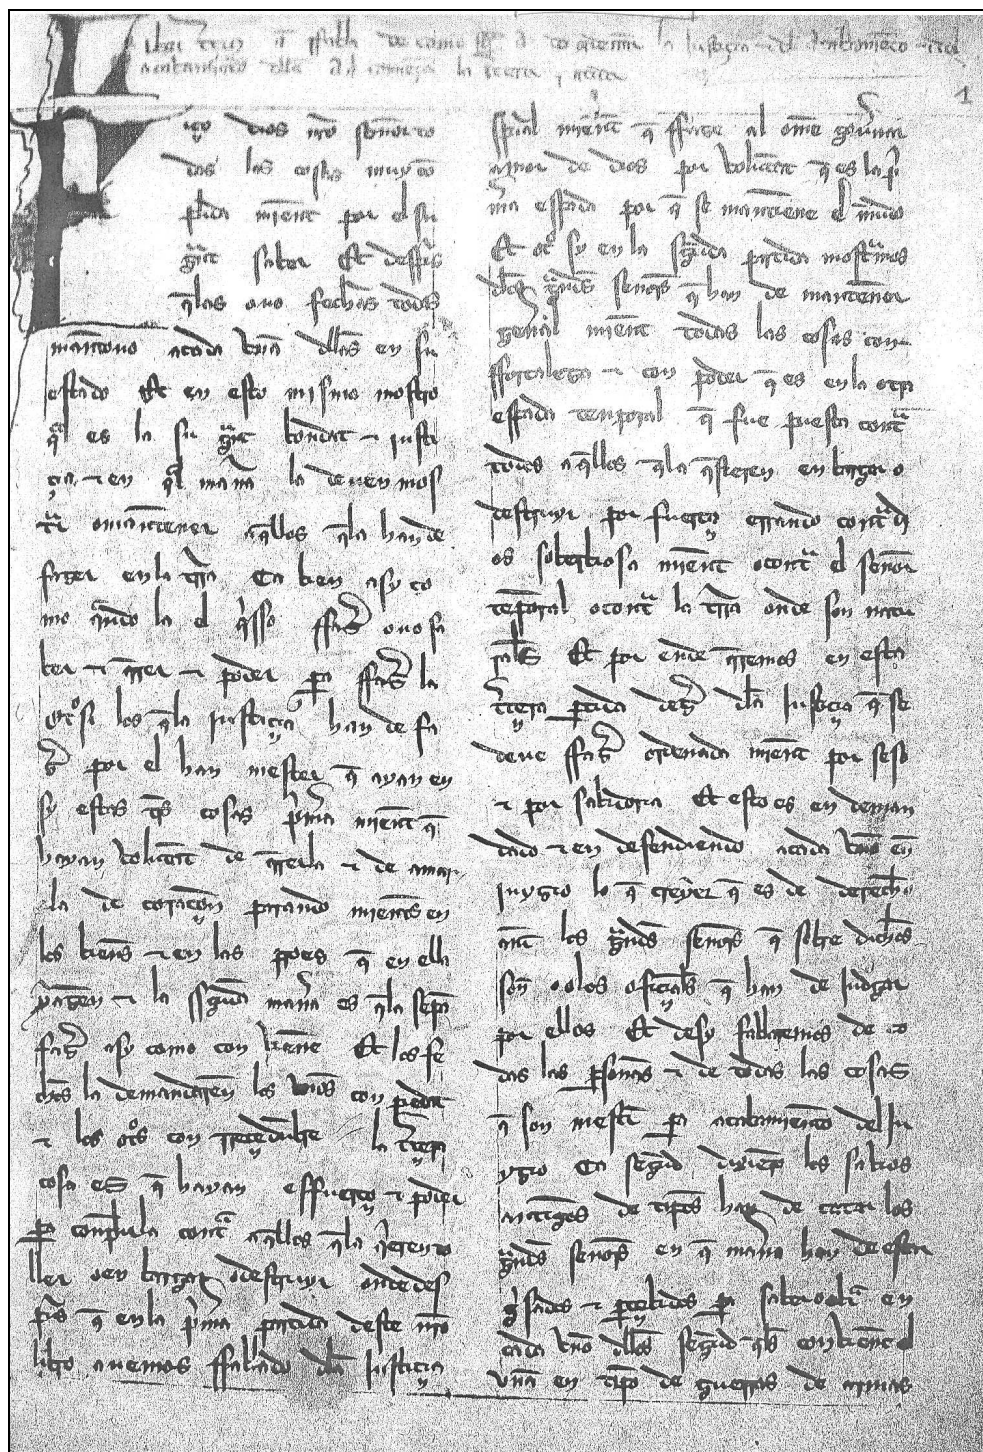 a acabamiento della Aqui comiença la tercera partida
1
izo dios nr̃o senor to
das las cosas muy cõ
plida mient por el su
grãt saber Et despues
q̃las ouo fechas todas
mantouo acada vña dellas en su
estado Et en esto mismo mostro
q̃l es la su grãt bondat ⁊ iusti
çia ⁊ en q̃l maña la deuen mos
trar o mantener aq̃llos q̃la han de
fazer en la tr̃ra Ca bien asy co
mo quãdo la el q̃sso ffaz̃ ouo sa
ber ⁊ q̃rer ⁊ poder pa ffaz̃ la
otͦsi los q̃la Justicia han de fa
z̃ por el han mester q̃ ayan en
sy estas tr̃s cosas p̃ma mient q̃
hayan volũtat de q̃rerla ⁊ de amar
la de coraçon parando mientes en
los bienes ⁊ en las pͦes q̃ en ella
yazen ⁊ la ssegũda maña es q̃la sepã
faz̃ asy como conviene Et los fe
chos la demandarẽ los vnos con piedat
⁊ los otͦs con rezedũbre la tercera
cosa es q̃ hayan esfuerço ⁊ poder
pa conplirla contra aq̃llos q̃la q̃siren to
ller o enbargar o destruyr onde des
pues q̃ en la p̃ma partida deste nr̃o
libro auemos ffablado dela Justicia
sp̃ial mient q̃ ffaze al om̃e gouernar
amor de dios por volũtat q̃ es la p̃
m̃a espada por q̃ se mantiene el mũdo
Et otͦ sy en la segũda partida mostramos
delos grãdes senores q̃ han de mantener
geñal mient todas las cosas con
ffortaleza ⁊ con poder q̃ es en la otra
espada tenporal q̃ fue puesta contra
todos aq̃llos q̃la q̃sieren enbargar o
destruyr por fuerça errando contra di
os soberbiosa mient o contra el senor
tenporal o contra la tr̃ra onde son natu
rales Et por ende q̃remos en esta
tercera partida dez̃ dela Justicia q̃ se
deue ffaz̃ ordenada mient por seso
⁊ por sabidoria Et esto es en deman
dado ⁊ en defendiendo acada vno en
iuyzio lo q̃ creyer q̃ es de derecho
ante los grãdes senores q̃ sobre dichos
son o olos oficiales q̃ han de Judgar
por ellos Et desy fablaremos de to
das las psonas ⁊ de todas las cosas
q̃ son mester pa acabamiento del Ju
yzio Ca segũd dixieron los sabios
antigos de tienpos han de catar los
grãdes senores en q̃ maña han de estar
guisados ⁊ percebidos pa saber obrar en
cada vno dellos segũd q̃les conviene el
vno en tienpo de guerras de armas